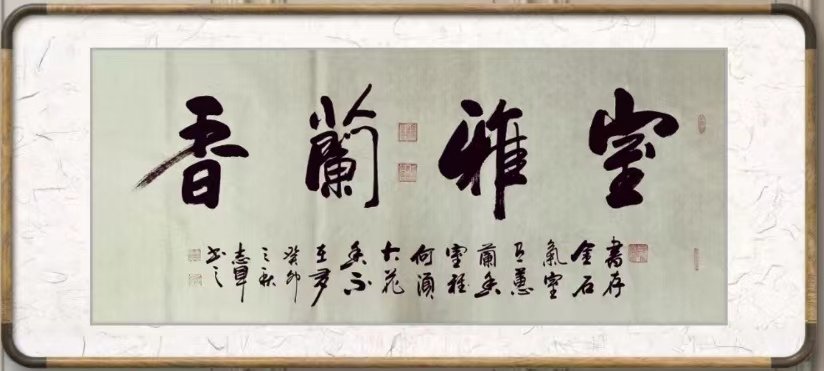 室雅蘭香
書存
金石
氣室
有蕙
蘭香
室雅
何須
大花
香不
在多
癸卯
之秋
志軍
書之